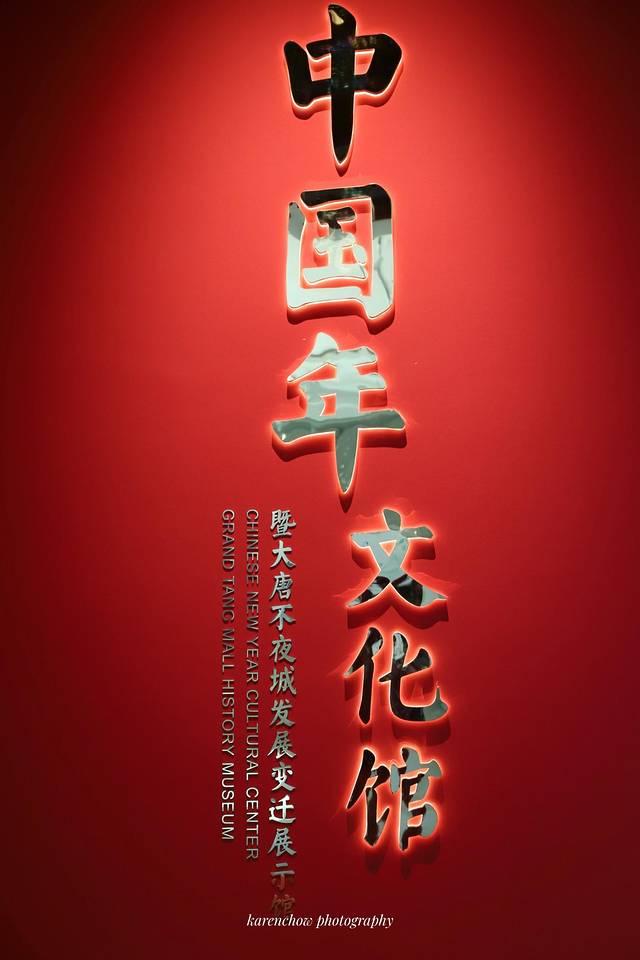 中国年
文化馆
暨大唐不夜城发展变迁展示馆
CHINESE NEW YEAR CULTURAL CENTER
GRAND TANG MALL HISTORY MUSEUM
karenchow photography